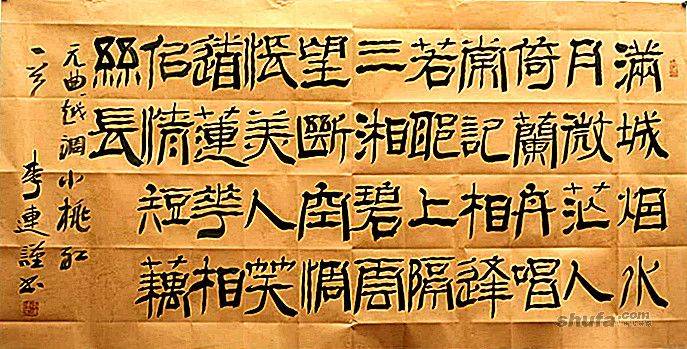 滿城烟水
月微茫人
倚蘭舟唱
常記相逢
若耶上隔
三湘碧雲
望斷空惆
悵美人笑
道蓮華相
佀情短藕
絲長
元曲越調小桃紅
一首 李連謹书
shufa.com